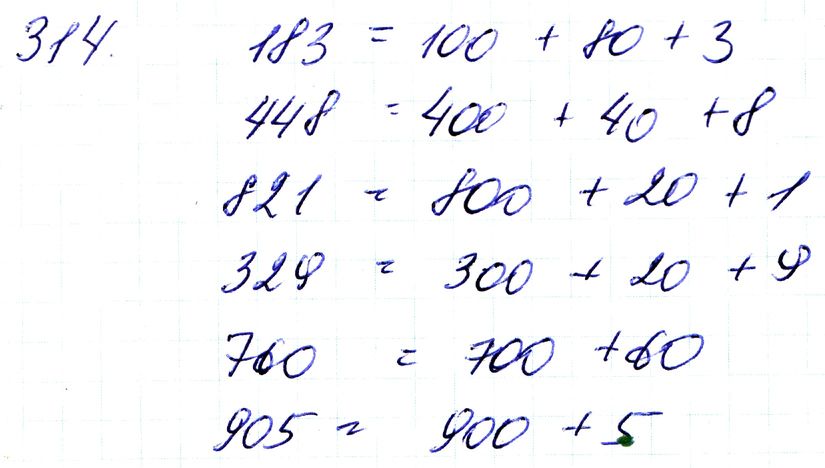 314. 183 = 100 + 80 + 3
448 = 400 + 40 + 8
821 = 800 + 20 + 1
329 = 300 + 20 + 9
760 = 700 + 60
905 = 900 + 5